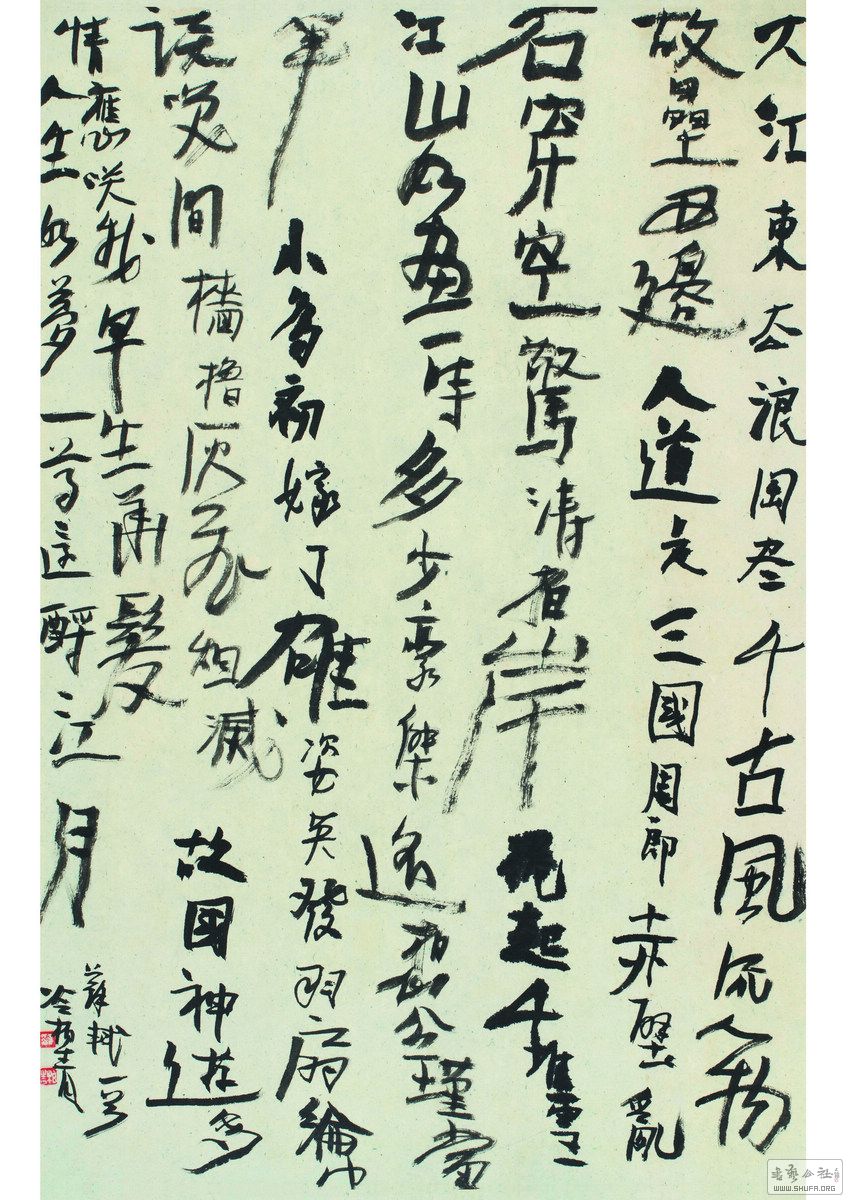 大江東去浪淘盡千古風流人物
故壘西邊人道是三國周郎赤壁亂
石穿空驚濤拍岸捲起千堆雪
江山如畫一時多少豪傑遙想公瑾當
年小喬初嫁了雄姿英發羽扇綸巾
談笑間檣櫓灰飛煙滅故國神遊多
情應笑我早生華髮
人生如夢一尊還酹江月
蘇軾
冷柏青
書藝公社
WWW.SHUFA.ORG